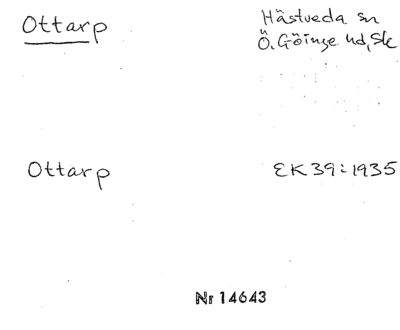 Ottarp
Hästveda sn
Ö. Göinge hd, Sk
Ottarp
EK 39:1935
Nr 14643